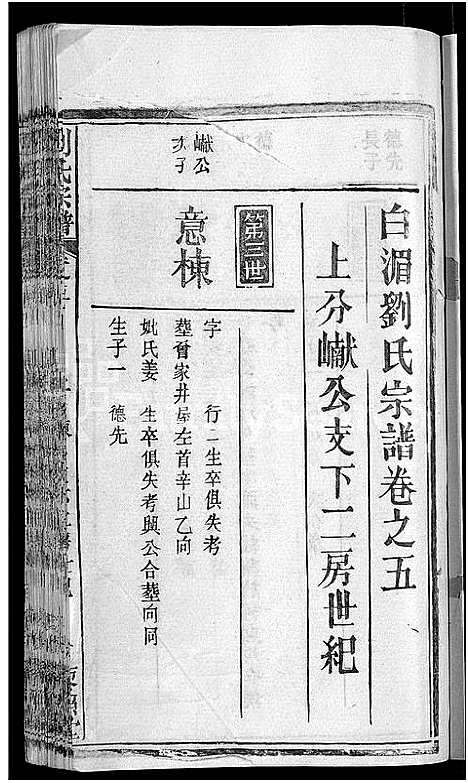 白湄劉氏宗譜卷之五
上分巘公支下二房世紀
第三世
巘公
次子
意棟
字　行二生卒俱失考
塟晉家井屋左首辛山乙向
妣氏姜　生卒俱失考與公合塟向同
生子一　德先